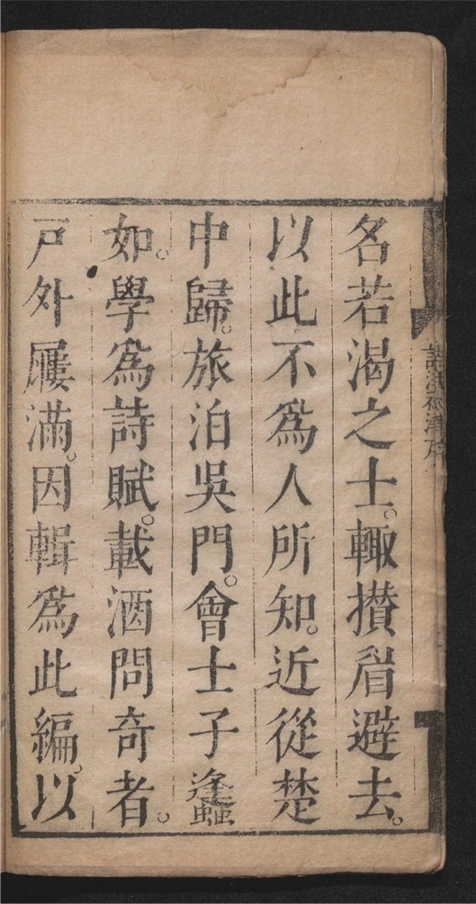 詩法初津序
名若渴之士。輙攅眉避去。
以此不爲人所知。近從楚
中歸。旅泊吳門。會士子蠭
如。學爲詩賦。載酒問奇者。
戶外屨滿。因輯爲此編。以